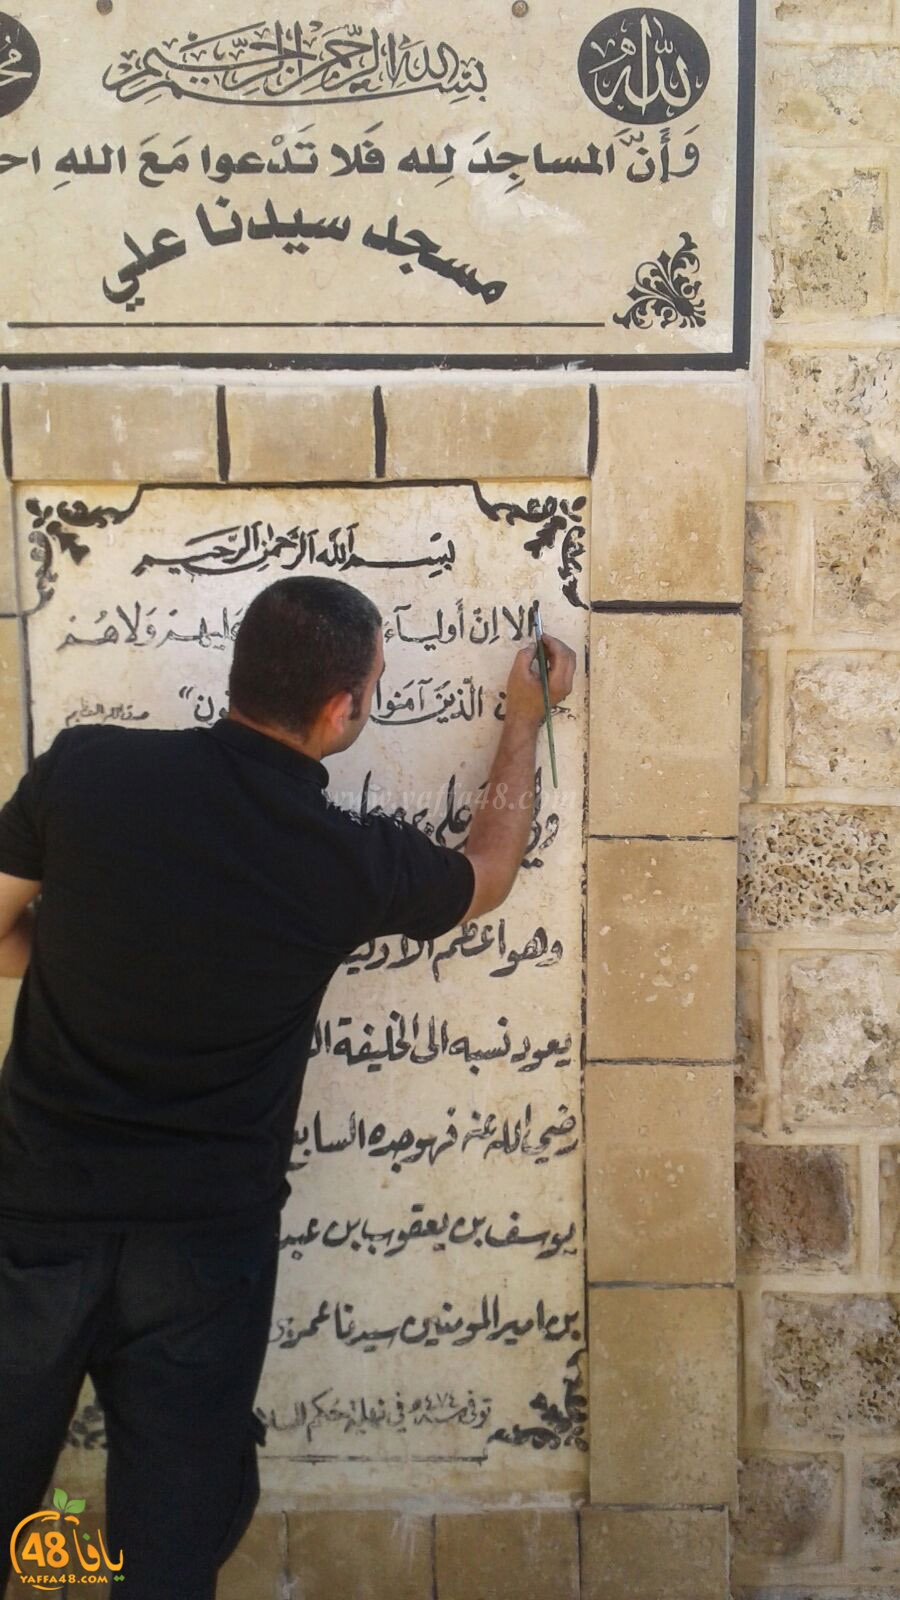 بسم الله الرحمن الرحيم
الله
وَأَنَّ المساجِدَ لِله فَلا تَدْعوا مَعَ اللهِ احـ
مسجد سيدنا علي
بِسْمِ اللَّهِ الرَّحْمَنِ الرَّحِيمِ
الا اِنّ أَوليـآء عَليهـمْ وَلاهُـمْ
الّذينَ آمَنوا
صدق الله العظيم
علي بن
وهو اعظم الاوليـ
يعود نسبه الى الخليفة الـ
رضي الله عنه فهو جده السابع
يوسف بن يعقوب بن عبد
بن امير المومنين سيدنا عمر
توفي سنة ٤٧٤هـ في نهاية حكم السلا
www.yaffa48.com
48 يافا
YAFFA48.COM